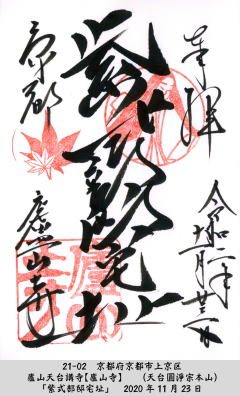 奉拝
令和二年
十一月廿三日
紫式部邸宅址
京都
廬山寺
21-02 京都府京都市上京区
廬山天台講寺【廬山寺】 (天台圓淨宗本山)
「紫式部邸宅址」 2020年11月23日